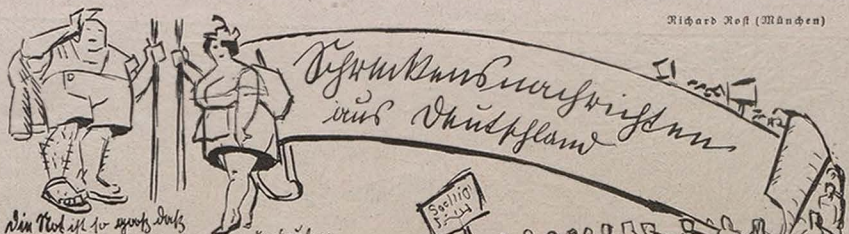 Richard Rost (München)
Schreckensnachrichten
aus Deutschland
Die Not ist so groß daß